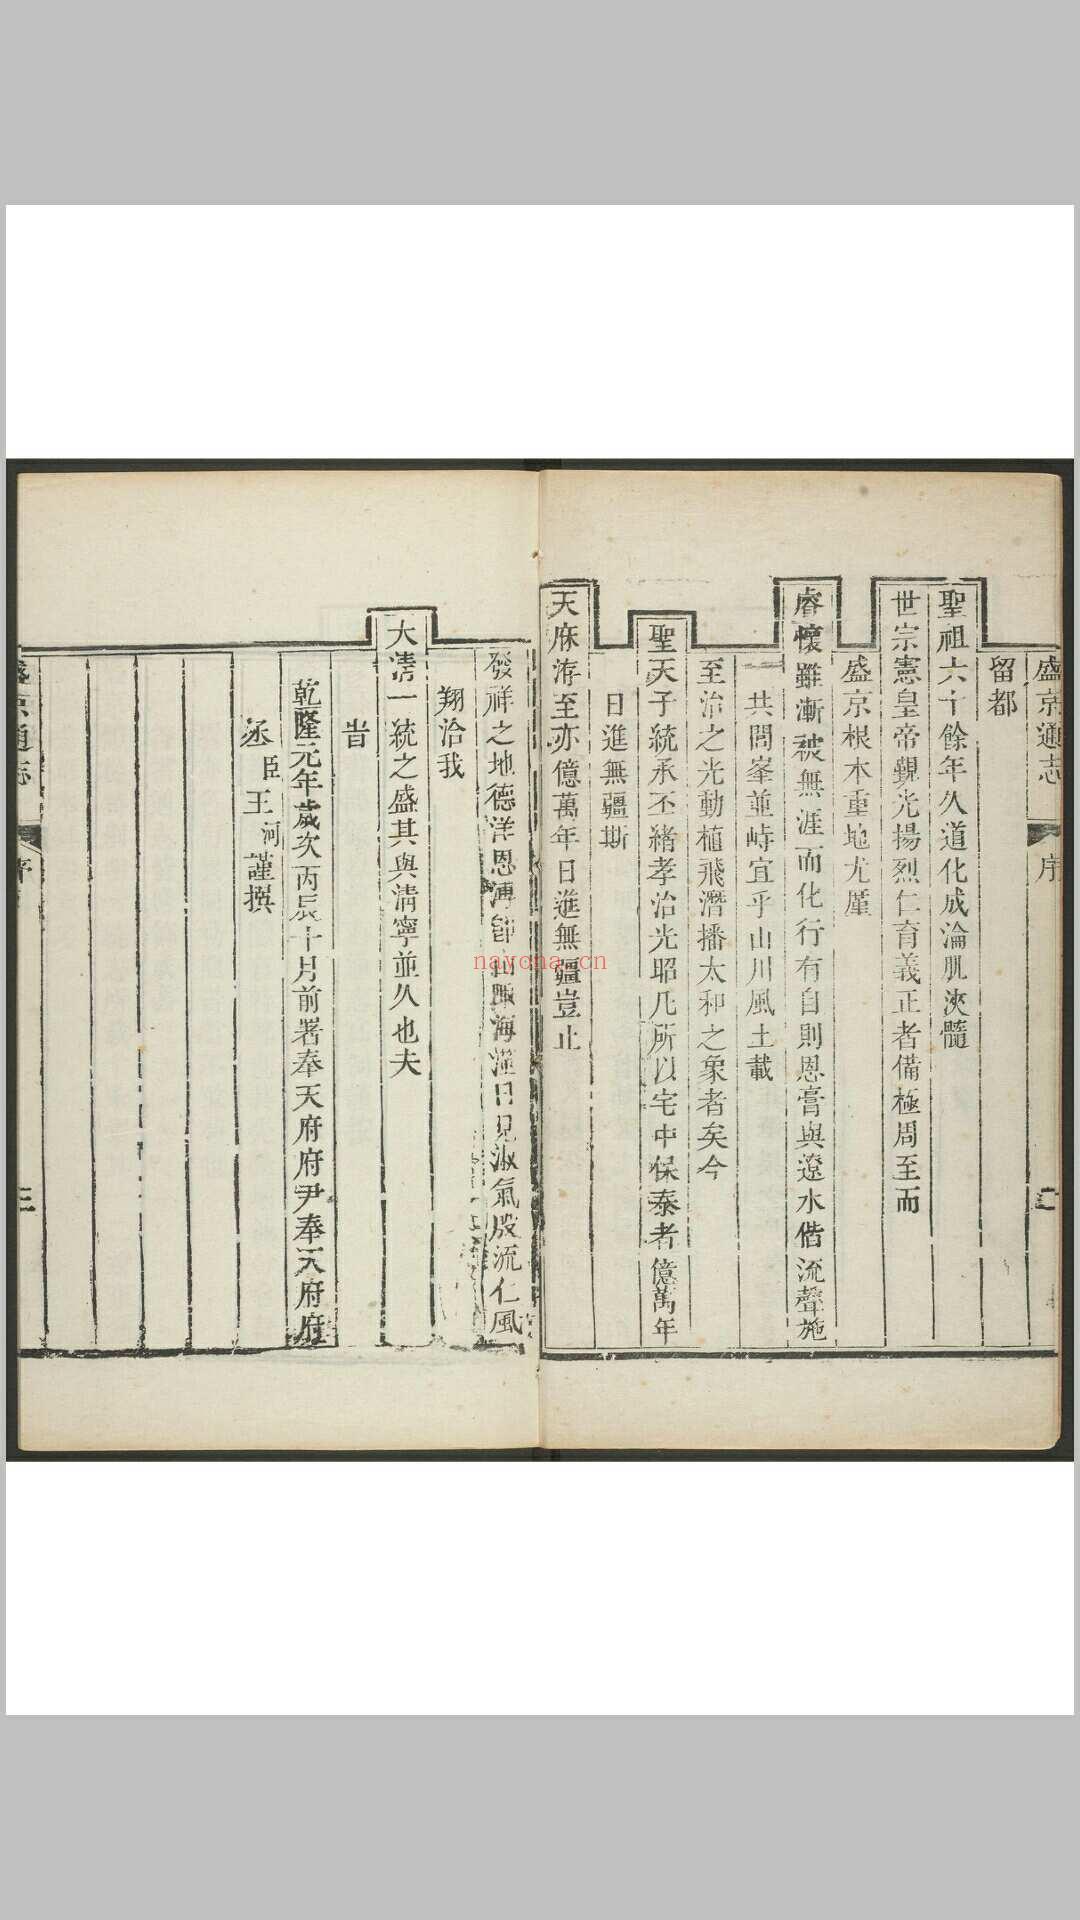 盛京通志 序 二
留都
聖祖六十餘年久道化成淪肌浹髓
世宗憲皇帝覲光揚烈仁育義正者備極周至而
盛京根本重地尤廑
睿懷雖漸被無涯而化行有自則恩膏與遼水偕流聲施
共閭峯並峙宜乎山川風土載
至治之光動植飛潛播太和之象者矣今
聖天子統承丕緒孝治光昭凡所以宅中保泰者億萬年
日進無疆斯
天庥洊至亦億萬年日進無疆豈止
發祥之地德洋恩溥 山陬海澨日見淑氣殷流仁風
翔洽我
大清一統之盛其與清寧並久也夫
旹
乾隆元年歲次丙辰十月前署奉天府府尹奉天府府
丞臣王河謹撰
盛京通志 序 三
nayona.cn